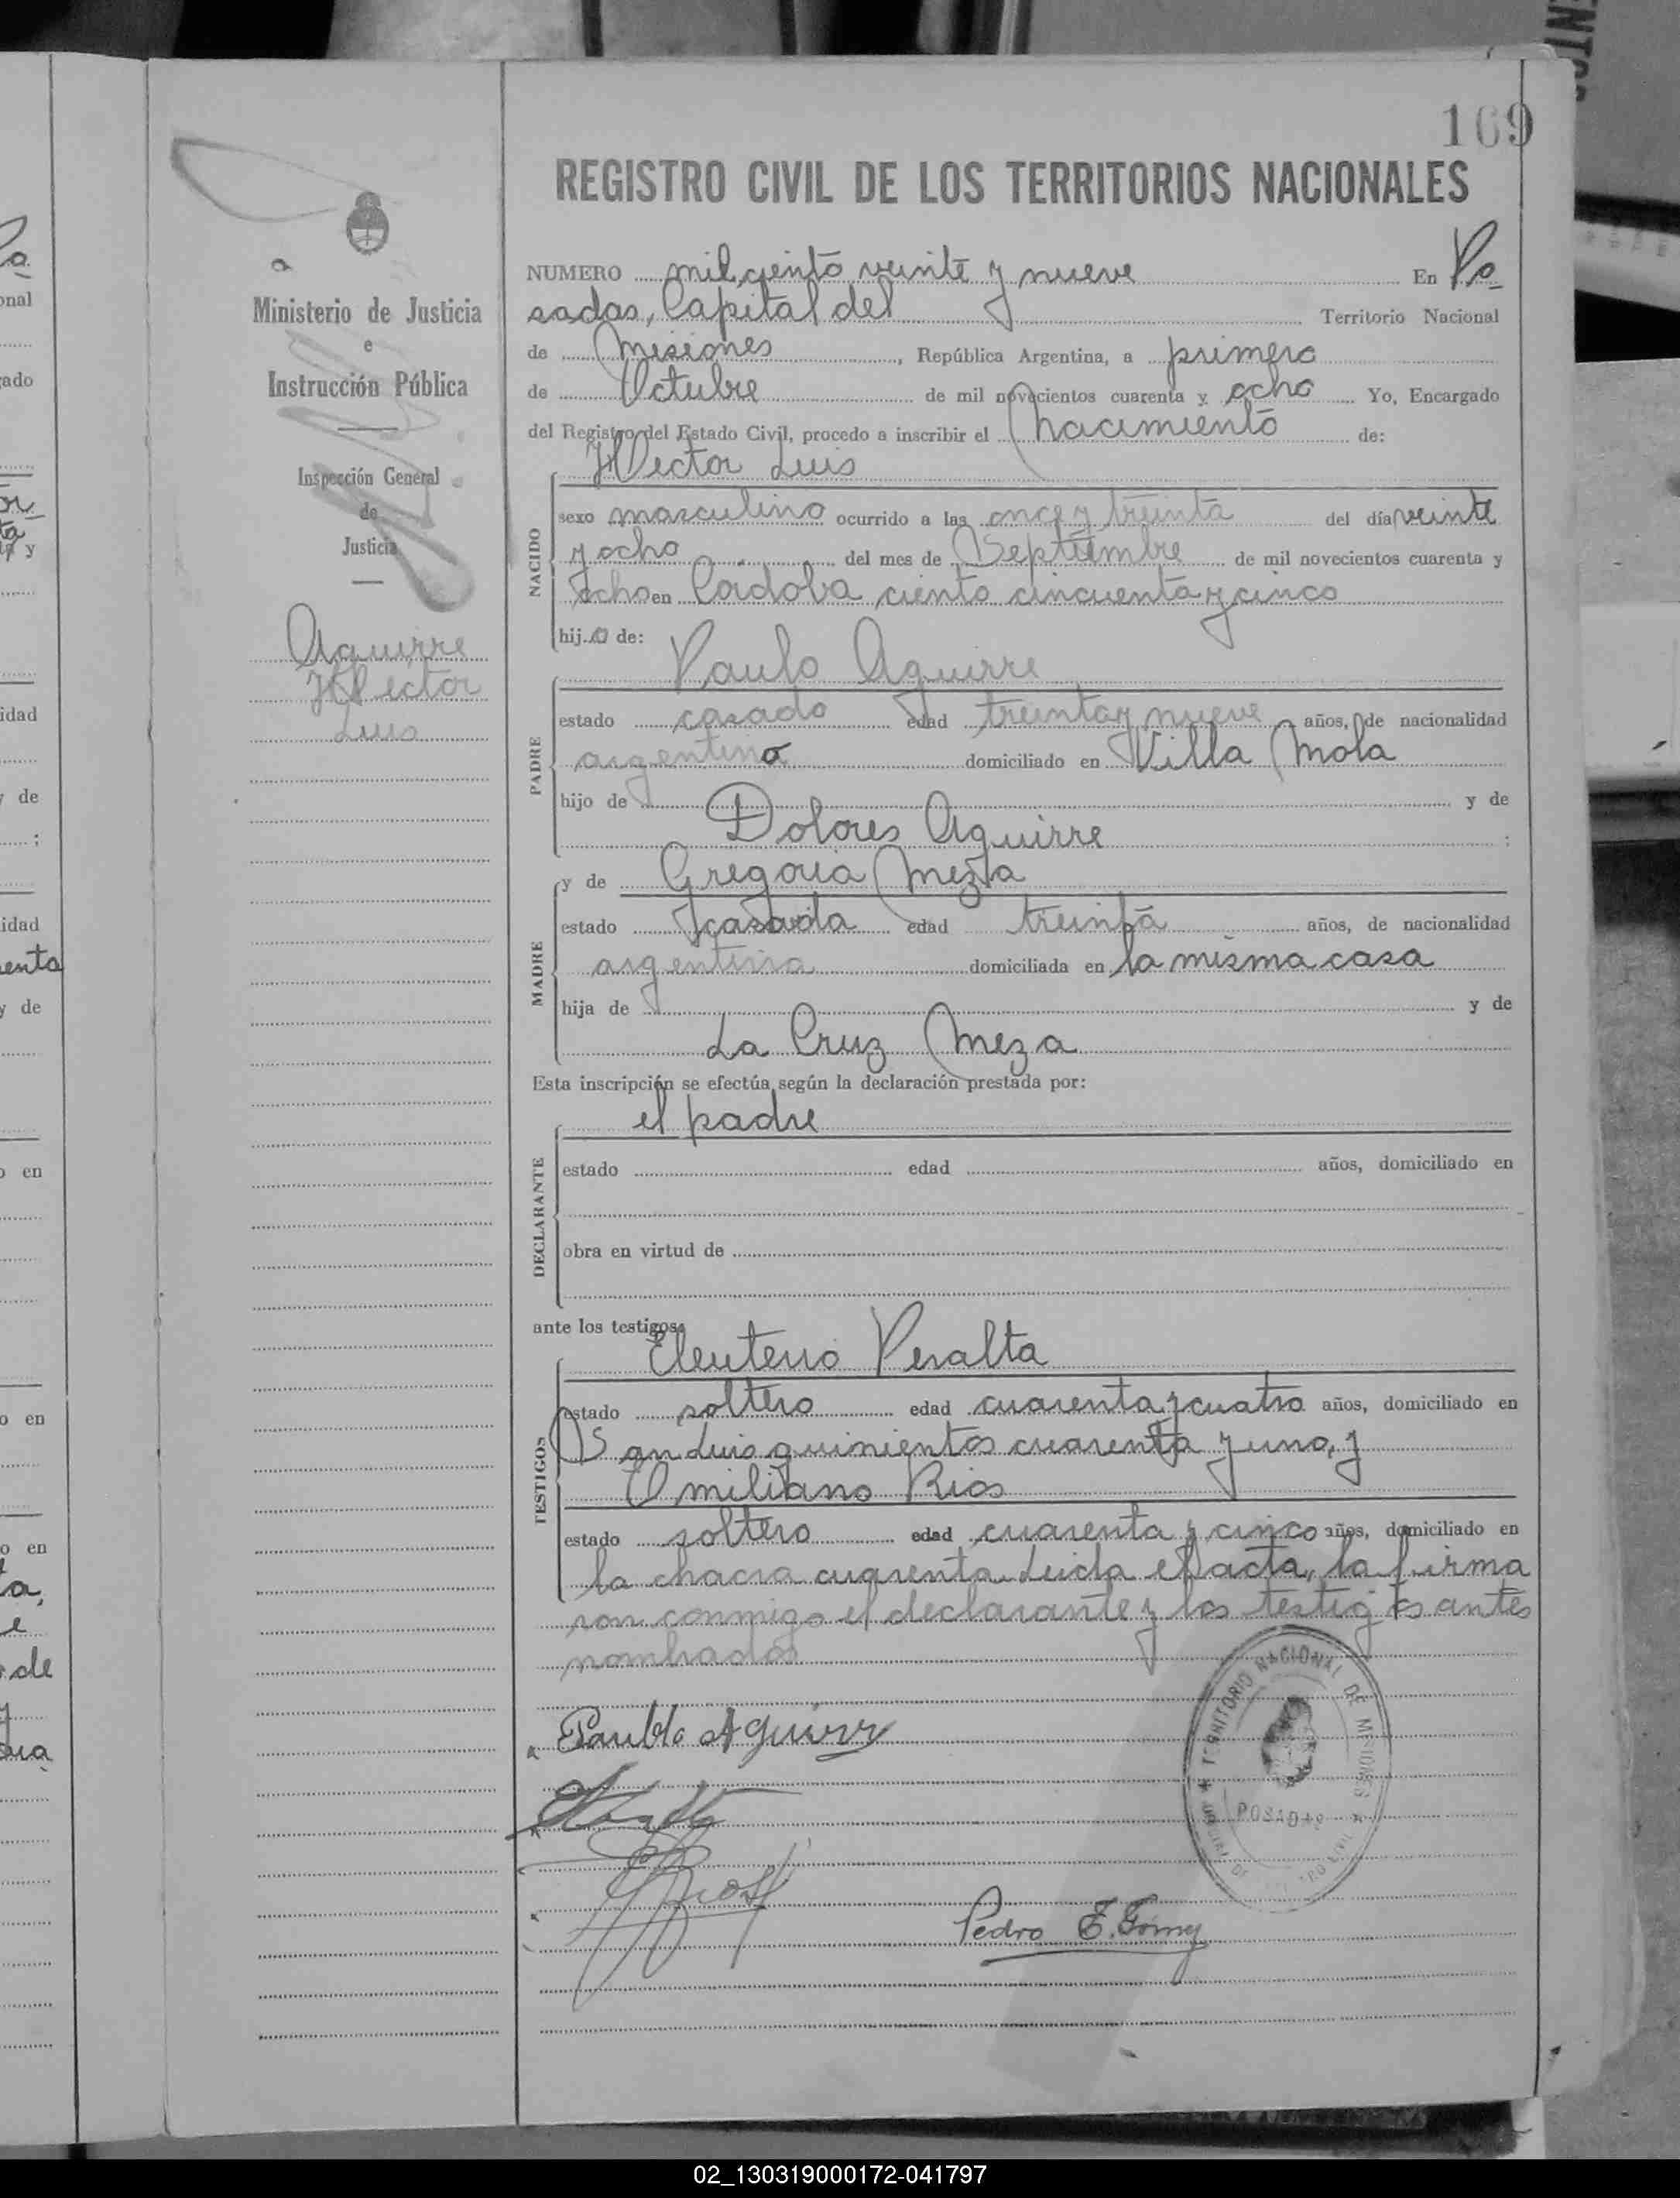 169
REGISTRO CIVIL DE LOS TERRITORIOS NACIONALES
Ministerio de Justicia
e
Instrucción Pública
Inspección General
de
Justicia
Aguirre
Hector
Luis
NUMERO mil ciento veinte y nueve En Po
sadas, Capital del Territorio Nacional
de Misiones, República Argentina, a primero
de Octubre de mil novecientos cuarenta y ocho Yo, Encargado
del Registro del Estado Civil, procedo a inscribir el Nacimiento de:
Hector Luis
NACIDO
sexo masculino ocurrido a las once y treinta del día veinte
y ocho del mes de Septiembre de mil novecientos cuarenta y
ocho en Córdoba ciento cincuenta y cinco
hijo de:
Paulo Aguirre
PADRE
estado casado edad treinta y nueve años, de nacionalidad
argentino domiciliado en Villa Mola
hijo de y de
Dolores Aguirre
y de Gregoria Meza
MADRE
estado casada edad treinta años, de nacionalidad
argentina domiciliada en la misma casa
hija de y de
La Cruz Meza
Esta inscripción se efectúa según la declaración prestada por:
el padre
DECLARANTE
estado edad años, domiciliado en
obra en virtud de
ante los testigos:
Eleuterio Peralta
TESTIGOS
estado soltero edad cuarenta y cuatro años, domiciliado en
San Luis quinientos cuarenta y uno, y
Emiliano Rios
estado soltero edad cuarenta y cinco años, domiciliado en
la chacra cuarenta. Leida el acta, la firma
ron conmigo el declarante y los testigos antes
nombrados
TERRITORIO NACIONAL DE MISIONES
POSADAS
Paublo Aguirr
Pedro E. Gómez
02_130319000172-041797